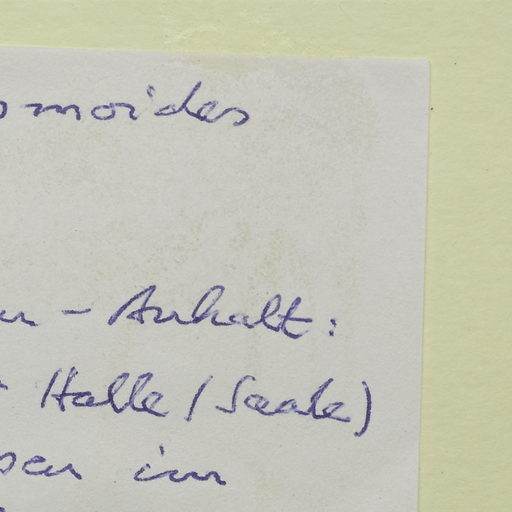 smoides
en - Anhalt:
Halle (Saale)
sen im